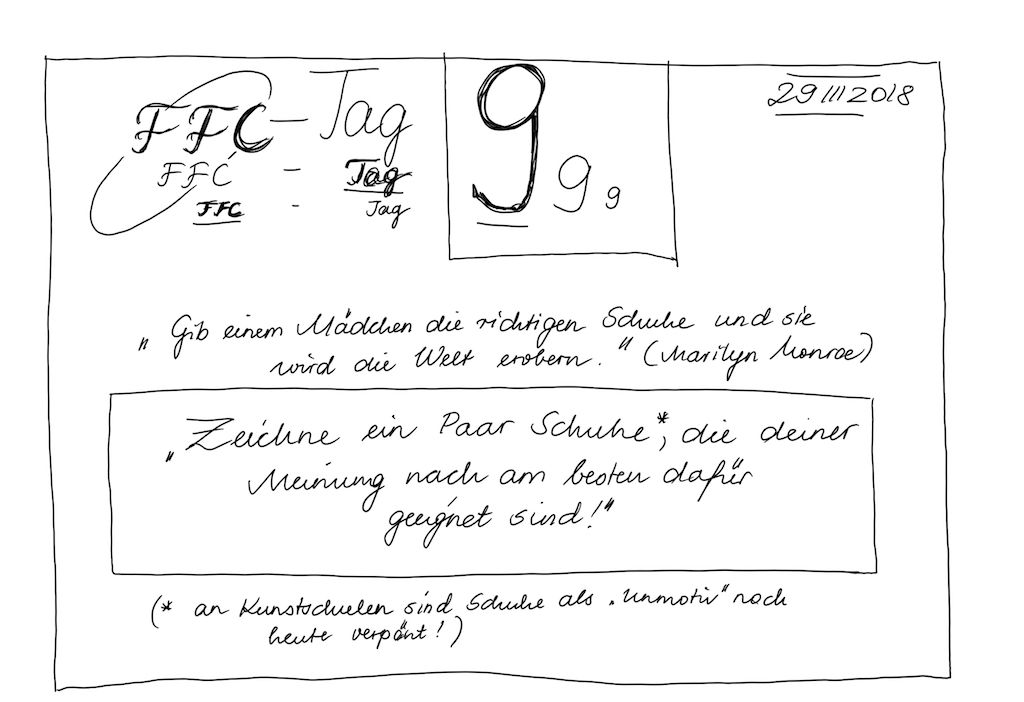 FFC - Tag
FFC - Tag
FFC - Tag
9 9 9
29 III 2018
„Gib einem Mädchen die richtigen Schuhe und sie
wird die Welt erobern." (Marilyn Monroe)
„Zeichne ein Paar Schuhe*, die deiner
Meinung nach am besten dafür
geeignet sind!"
(* an Kunstschuelen sind Schuhe als „Unmotiv" noch
heute verpönt!)